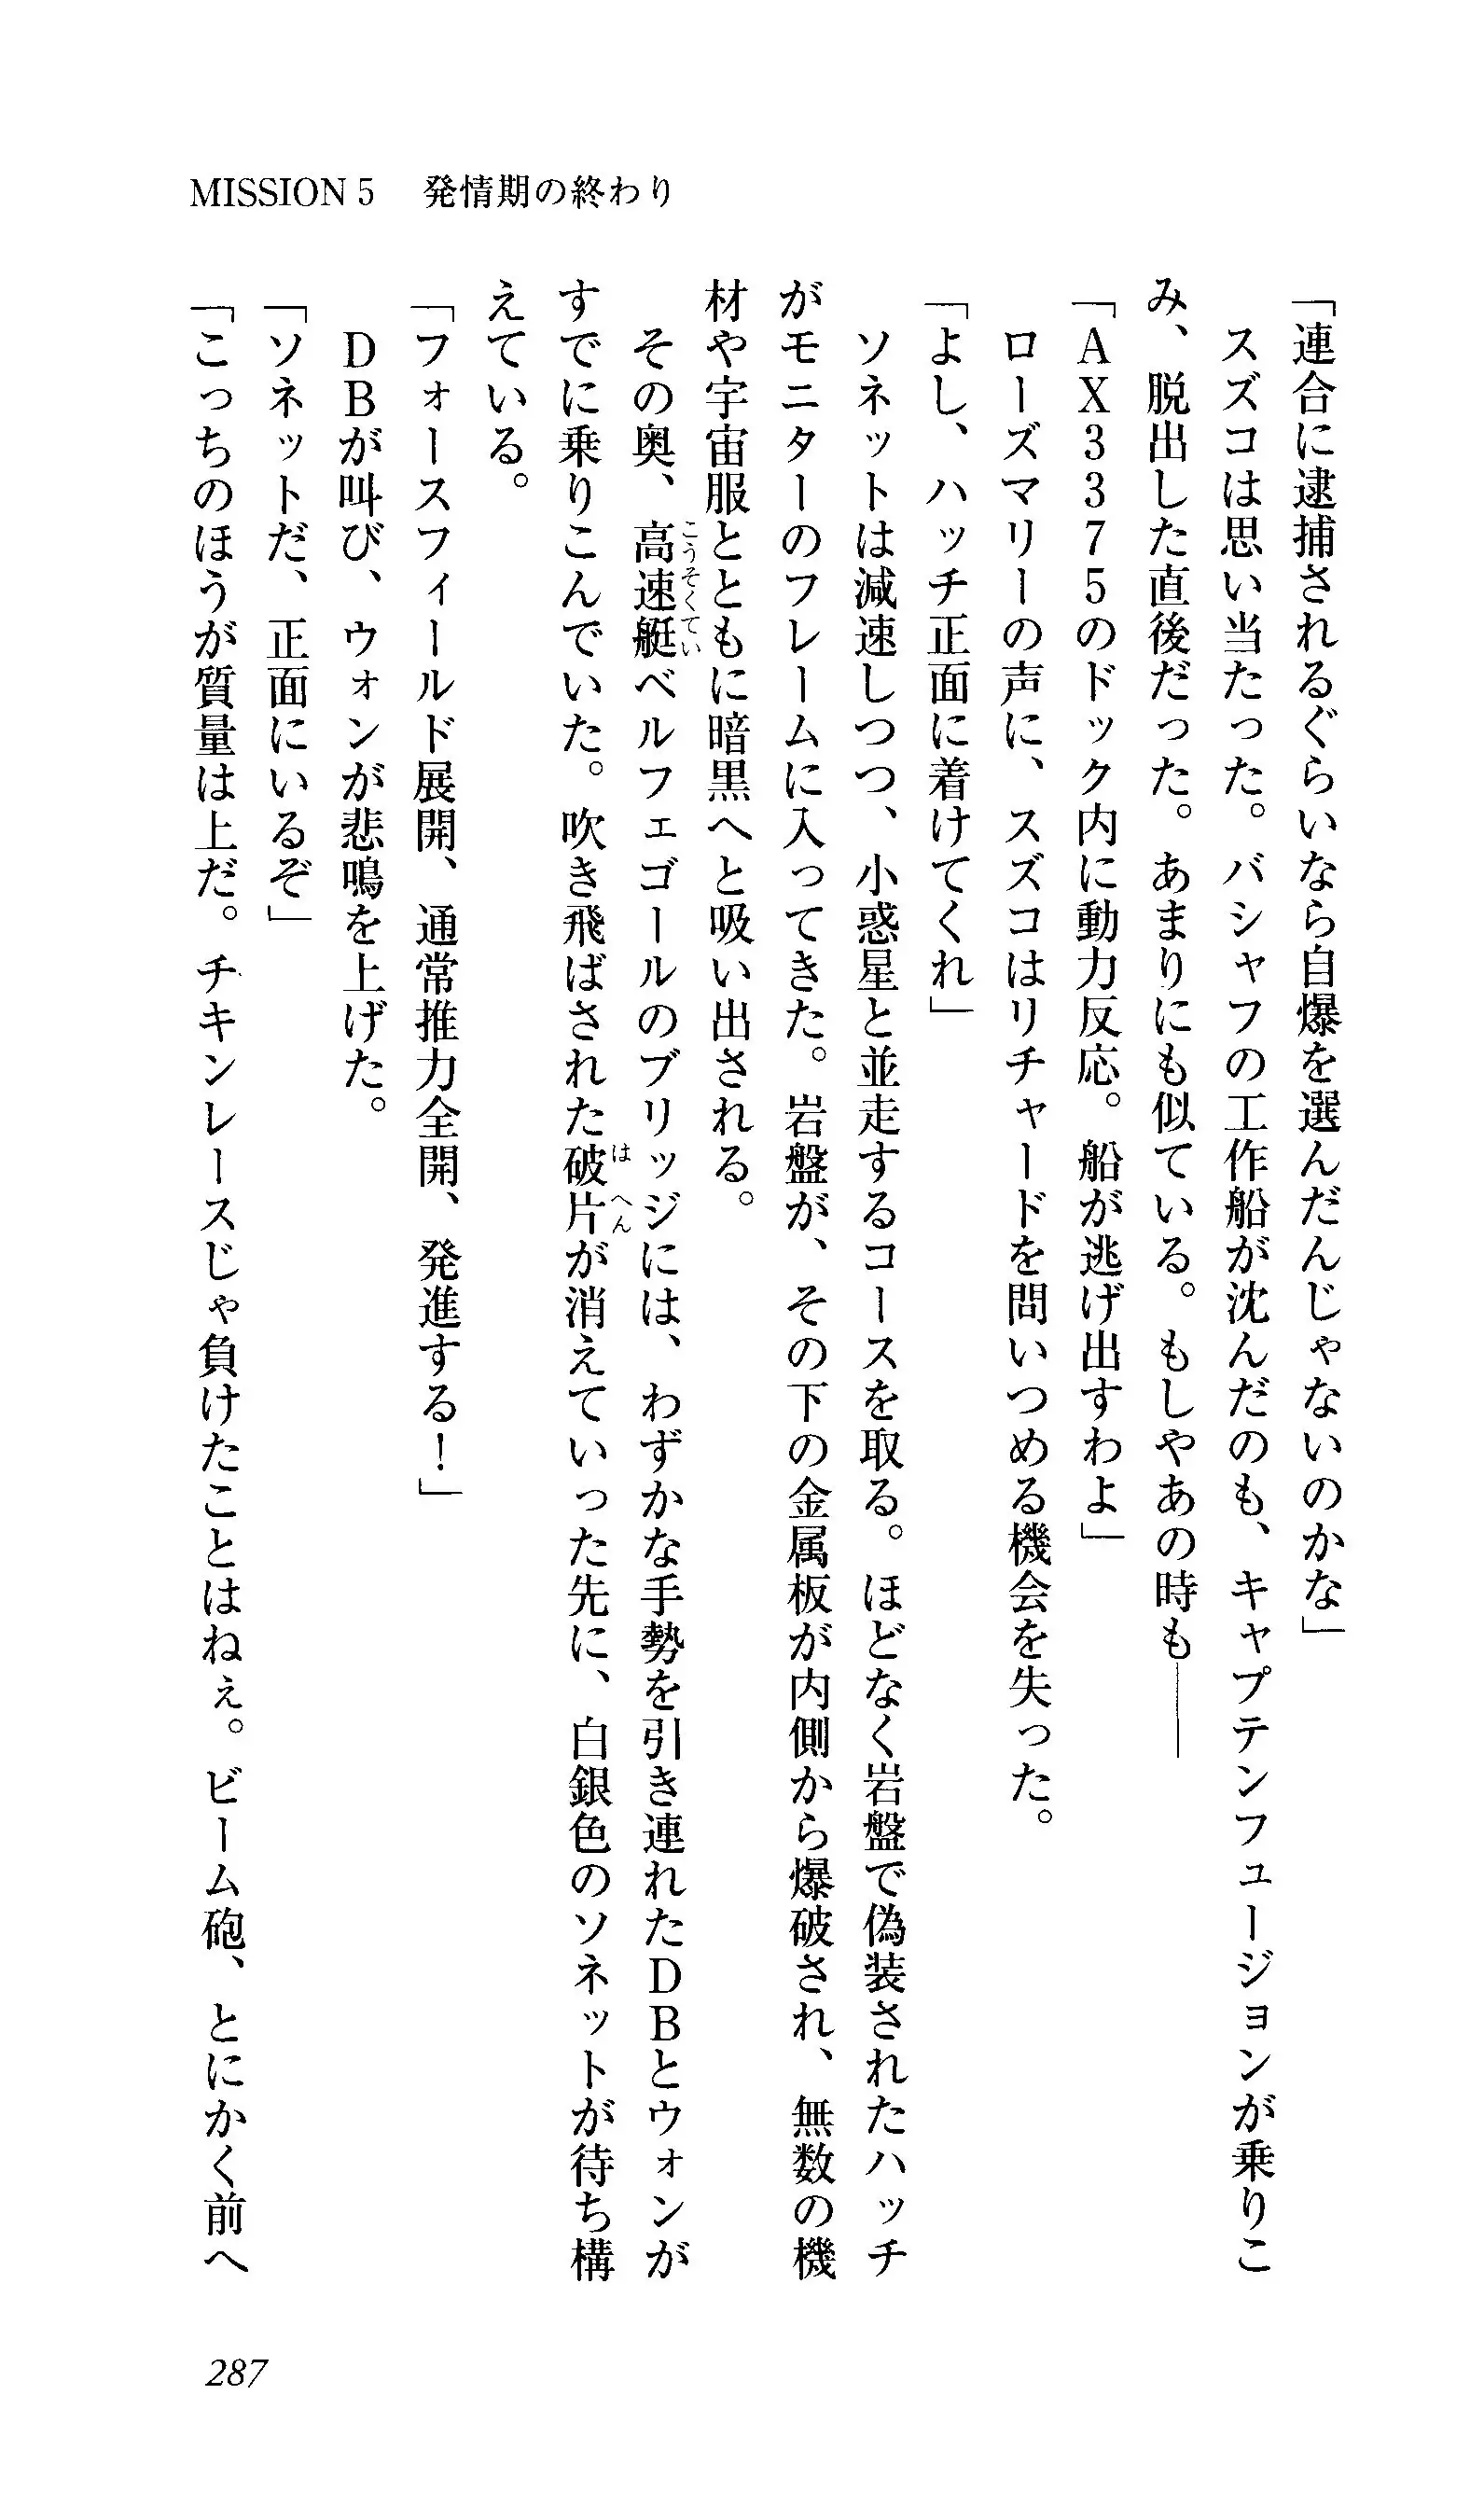 MISSION 5　発情期の終わり
「連合に逮捕されるぐらいなら自爆を選んだんじゃないのかな」
　スズコは思い当たった。バシャフの工作船が沈んだのも、キャプテンフュージョンが乗りこ
み、脱出した直後だった。あまりにも似ている。もしやあの時も――
「ＡＸ３３７５のドック内に動力反応。船が逃げ出すわよ」
　ローズマリーの声に、スズコはリチャードを問いつめる機会を失った。
「よし、ハッチ正面に着けてくれ」
　ソネットは減速しつつ、小惑星と並走するコースを取る。ほどなく岩盤で偽装されたハッチ
がモニターのフレームに入ってきた。岩盤が、その下の金属板が内側から爆破され、無数の機
材や宇宙服とともに暗黒へと吸い出される。
　その奥、高速艇こうそくていベルフェゴールのブリッジには、わずかな手勢を引き連れたＤＢとウォンが
すでに乗りこんでいた。吹き飛ばされた破片はへんが消えていった先に、白銀色のソネットが待ち構
えている。
「フォースフィールド展開、通常推力全開、発進する！」
　ＤＢが叫び、ウォンが悲鳴を上げた。
「ソネットだ、正面にいるぞ」
「こっちのほうが質量は上だ。チキンレースじゃ負けたことはねぇ。ビーム砲、とにかく前へ
287